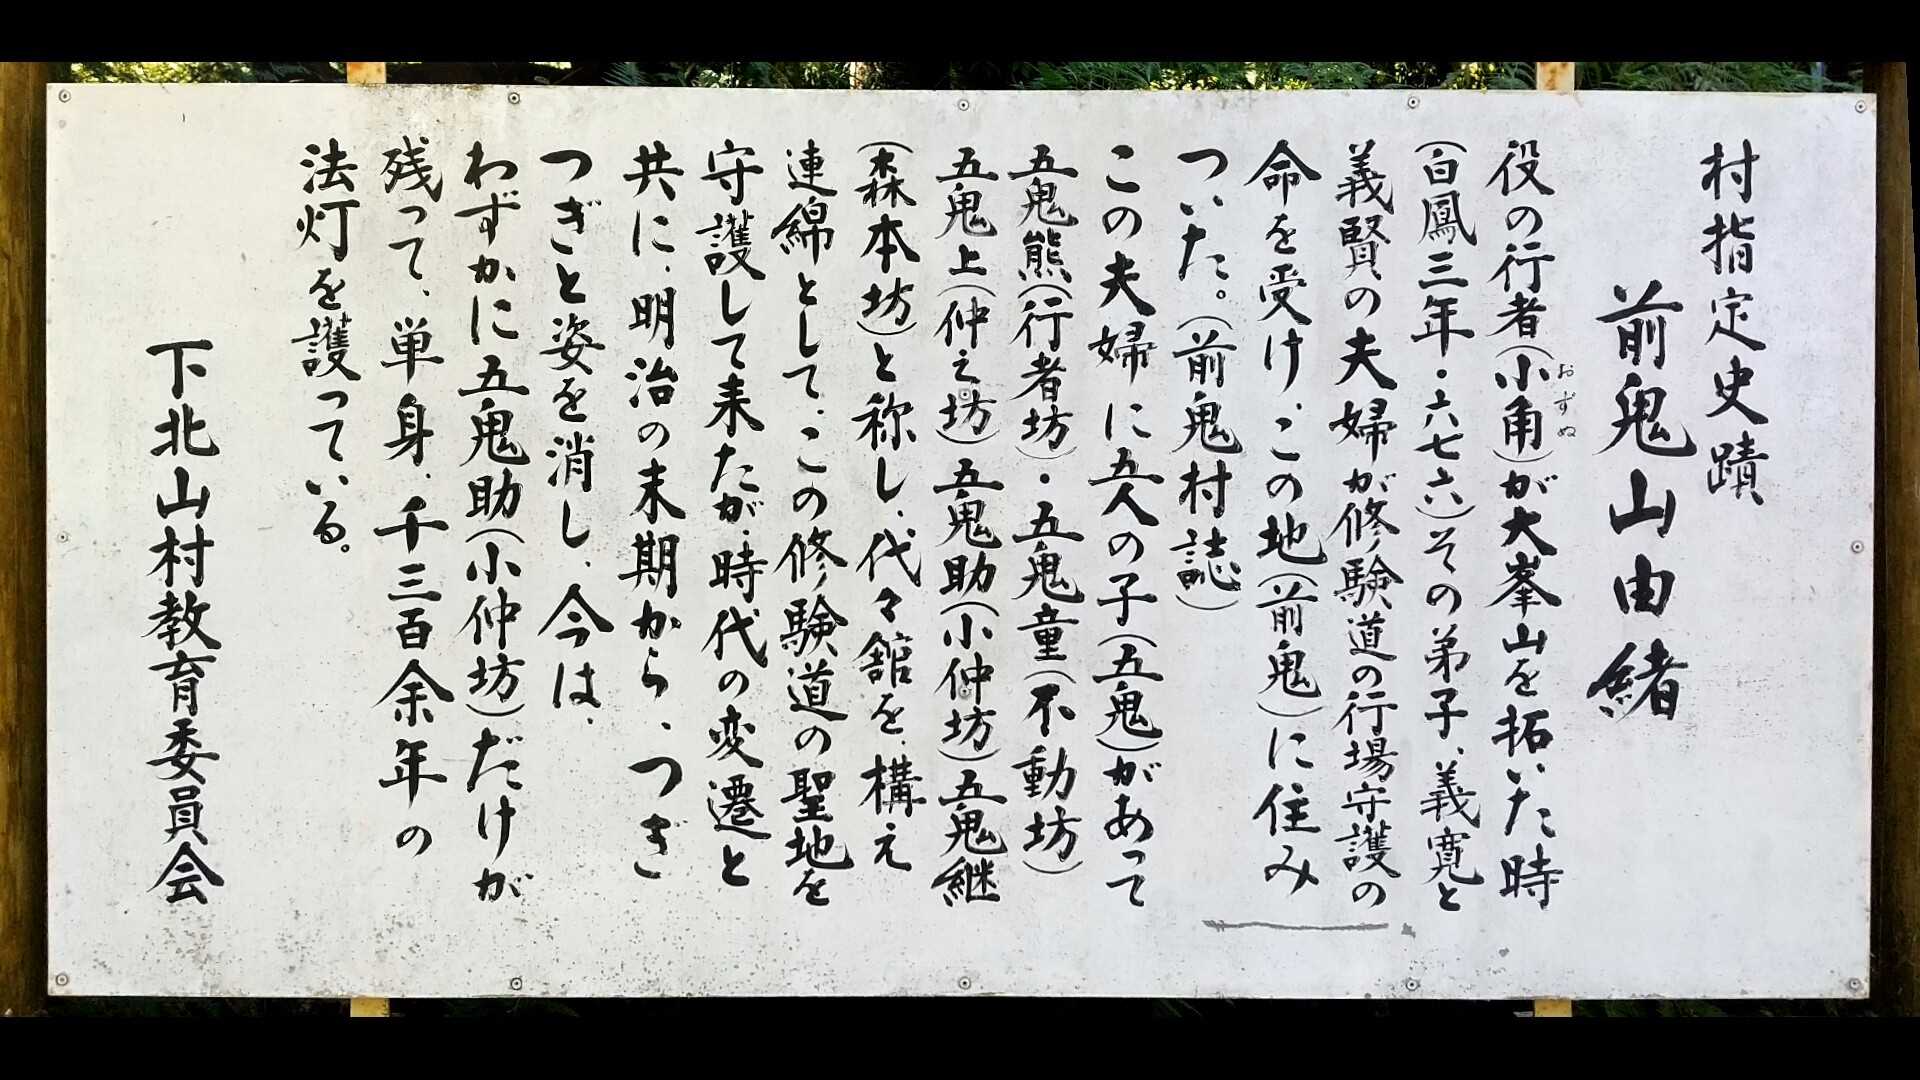 村指定史蹟
前鬼山由緒
役の行者（小角）が大峯山を拓いた時
おずぬ
（白鳳三年・六七六）その弟子、義寛と
義賢の夫婦が修験道の行場守護の
命を受け、この地（前鬼）に住み
ついた。（前鬼村誌）
この夫婦に五人の子（五鬼）があって
五鬼熊（行者坊）・五鬼童（不動坊）
五鬼上（仲之坊）五鬼助（小仲坊）五鬼継
（森本坊）と称し、代々舘を、構え
連綿として、この修験道の聖地を
守護して来たが、時代の変遷と
共に、明治の末期から、つぎ
つぎと姿を消し、今は、
わずかに五鬼助（小仲坊）だけが
残って、単身、千三百余年の
法灯を護っている。
下北山村教育委員会